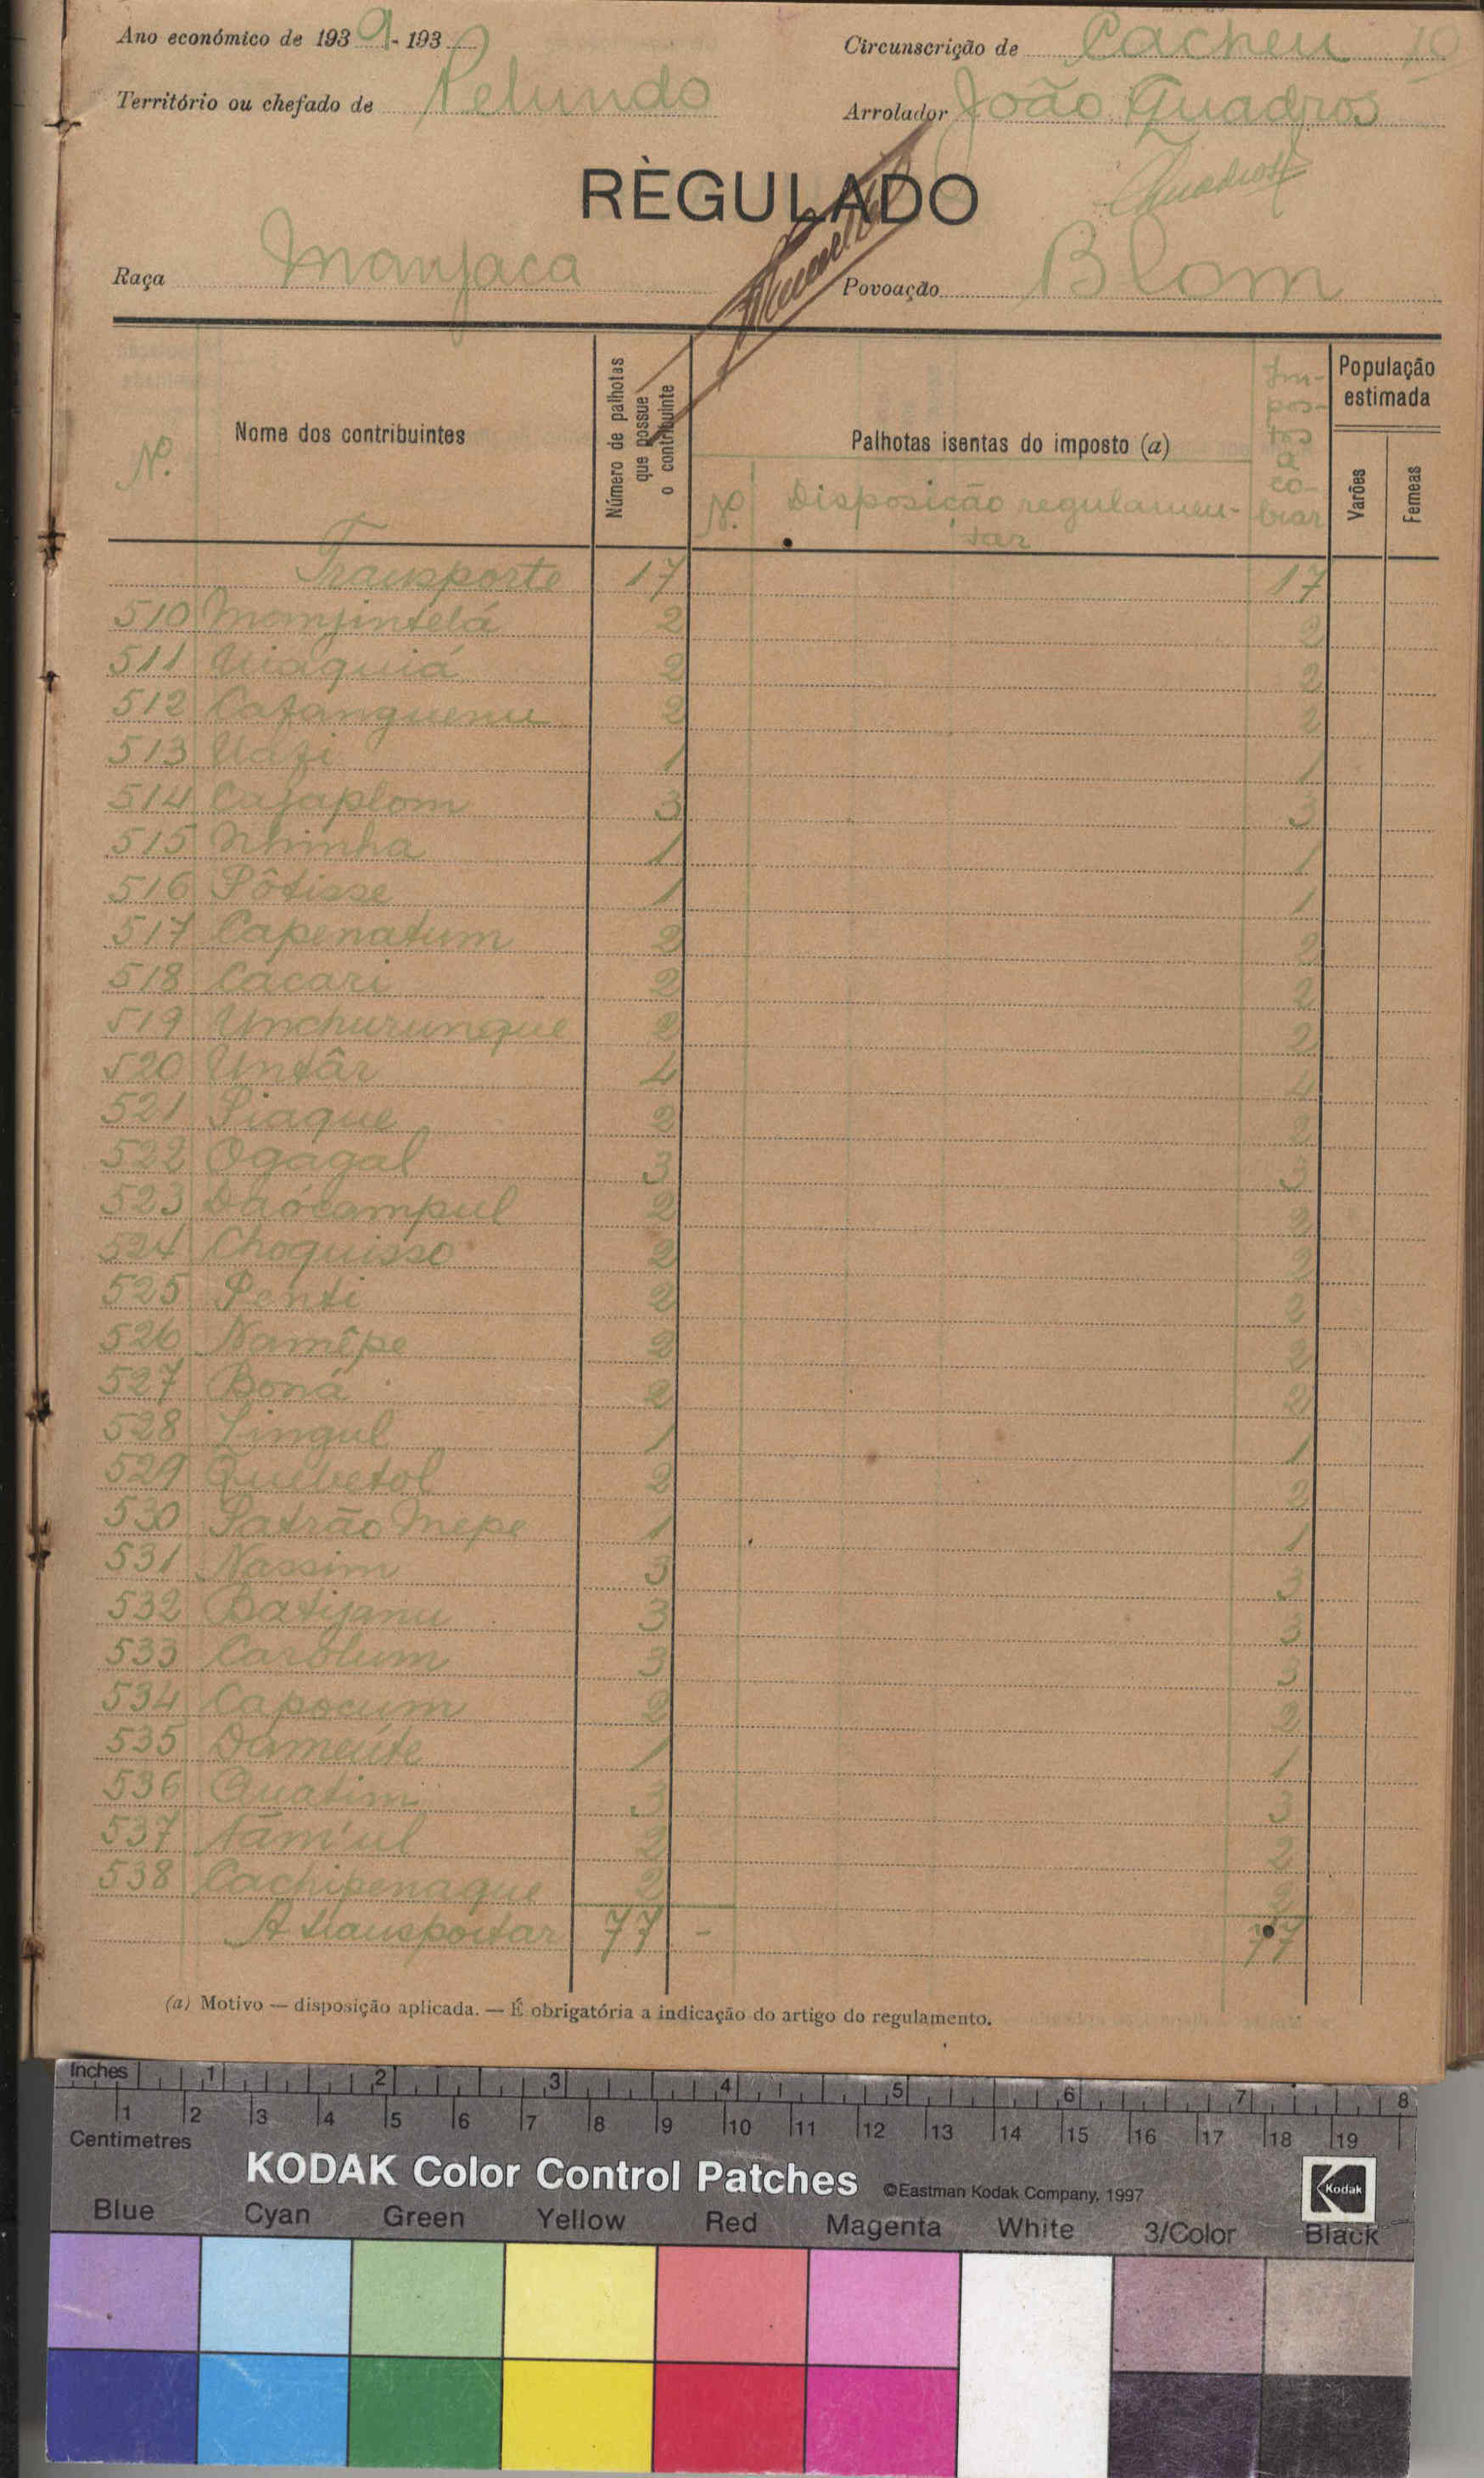 Ano económico de 1939-193
Circunscrição de Cacheu 10
Território ou chefado de Pelundo
Arrolador João Quadros
Quadros
RÈGULADO
Raça Manjaca
Povoação Blom
N.
Nome dos contribuintes
Número de palhotas
que possue
o contribuinte
Palhotas isentas do imposto (a)
N.º Disposição regulamen-
tar
Im-
pos-
tos
a
co-
brar
População
estimada
Varões
Femeas
Transporte 17 17
510 Manjintelá 2 2
511 Uiaquiá 2 2
512 Catanguenu 2 2
513 Uati 1 1
514 Cajaplom 3 3
515 Nhinha 1 1
516 Pôtisse 1 1
517 Capenatum 2 2
518 Cácari 2 2
519 Unchurunque 2 2
520 Untâr 4 4
521 Piaque 2 2
522 Ogagal 3 3
523 Daócampul 2 2
524 Choquisso 2 2
525 Penti 2 2
526 Namêpe 2 2
527 Boná 2 2
528 Lingul 1 1
529 Quebetol 2 2
530 Patrão Mepe 1 1
531 Nassim 3 3
532 Batijanu 3 3
533 Carolum 3 3
534 Capocum 2 2
535 Dameúte 1 1
536 Quatim 3 3
537 Nam'ul 2 2
538 Cachipenaque 2 2
A transportar 77 - 77
(a) Motivo — disposição aplicada. — É obrigatória a indicação do artigo do regulamento.
Inches 1 2 3 4 5 6 7 8
1 2 3 4 5 6 7 8 9 10 11 12 13 14 15 16 17 18 19
Centimetres
KODAK Color Control Patches ©Eastman Kodak Company, 1997
Kodak
Blue Cyan Green Yellow Red Magenta White 3/Color Black